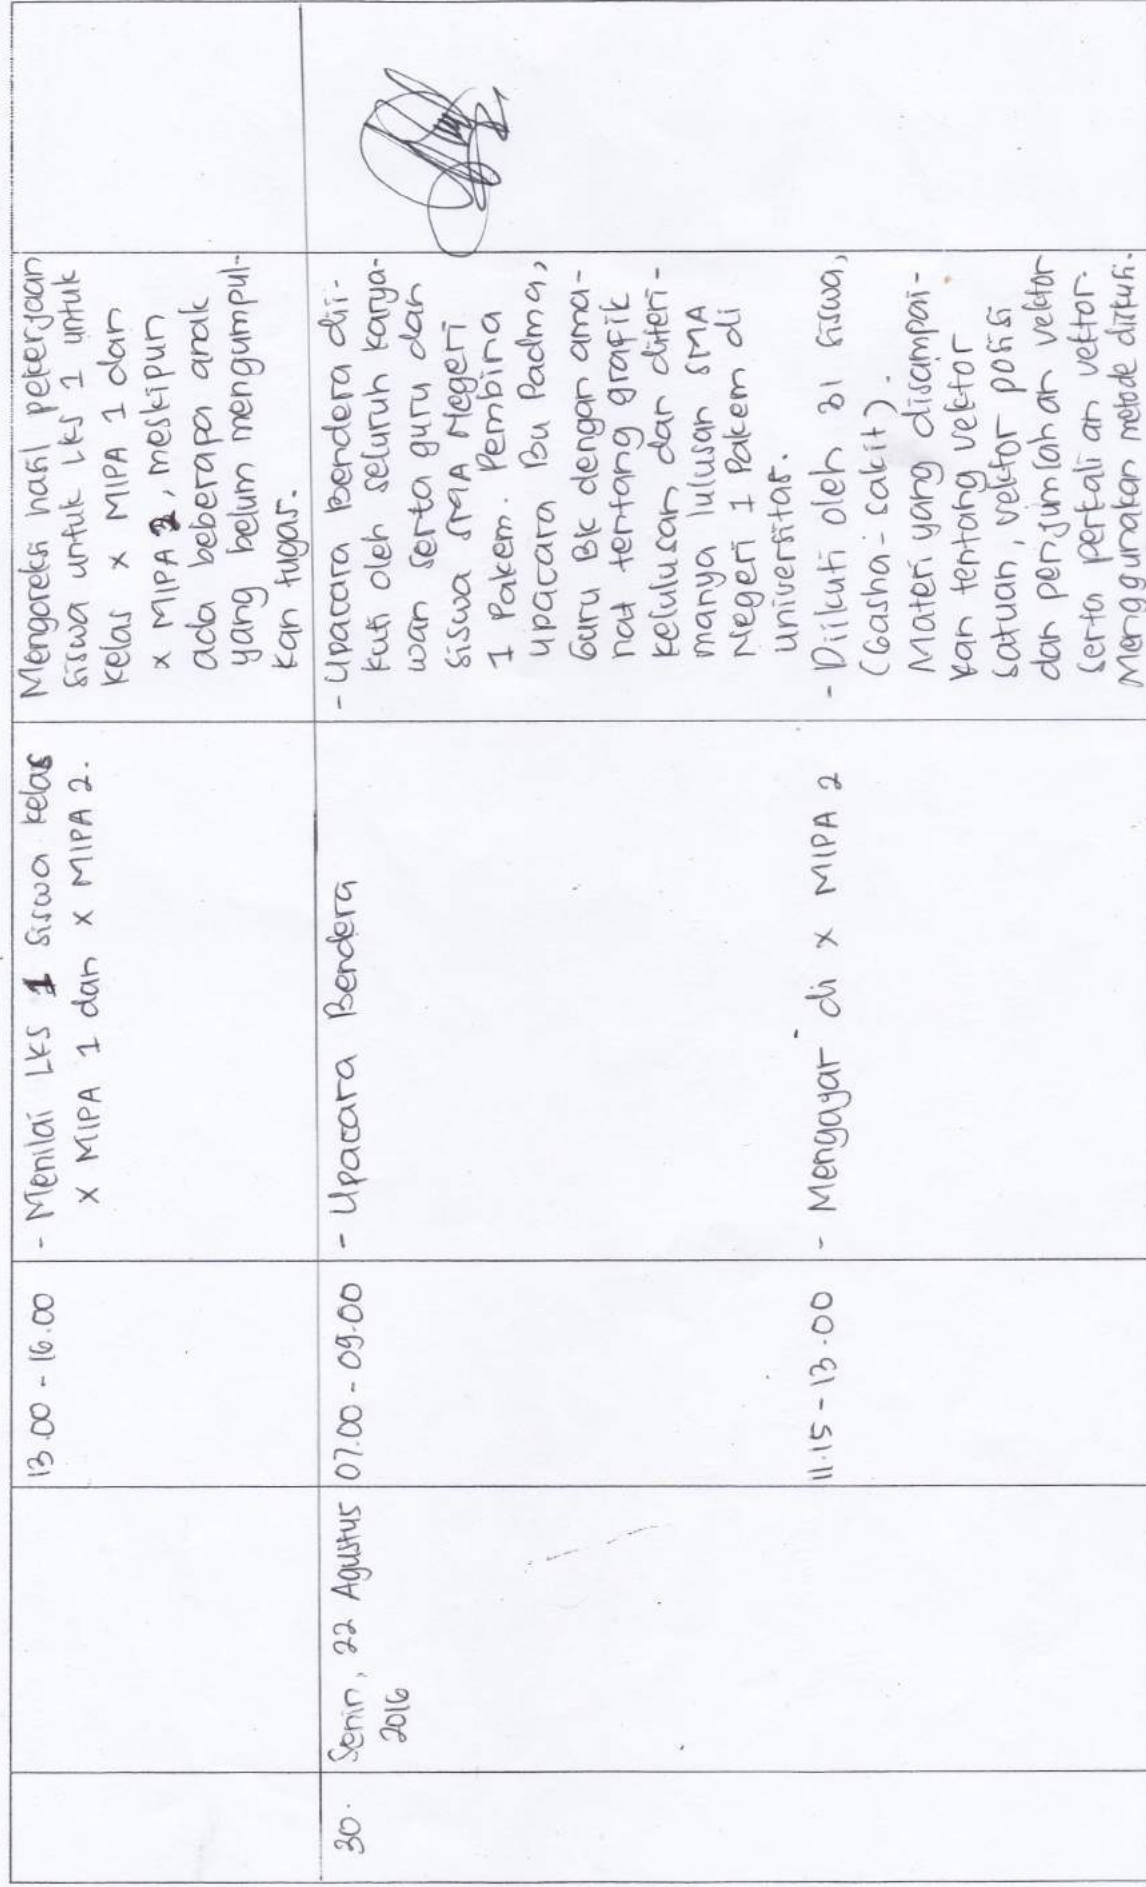 13.00 - 16.00
- Menilai LKS 1 siswa kelas
X MIPA 1 dan X MIPA 2.
Mengoreksi hasil pekerjaan
siswa untuk LKS 1 untuk
kelas X MIPA 1 dan
X MIPA 2, meskipun
ada beberapa anak
yang belum mengumpul-
kan tugas.
30.
Senin, 22 Agustus
2016
07.00 - 09.00
- Upacara Bendera
- Upacara Bendera dii-
kuti oleh seluruh karya-
wan serta guru dan
siswa SMA Negeri
1 Pakem. Pembina
upacara Bu Padma,
Guru BK dengan ama-
nat tentang grafik
kelulusan dan diteri-
manya lulusan SMA
Negeri 1 Pakem di
universitas.
11.15 - 13.00
- Mengajar di X MIPA 2
- Diikuti oleh 31 siswa,
(Gasha-sakit).
Materi yang disampai-
kan tentang vektor
satuan, vektor posisi
dan penjumlahan vektor
serta perkalian vektor.
Menggunakan metode diskusi.